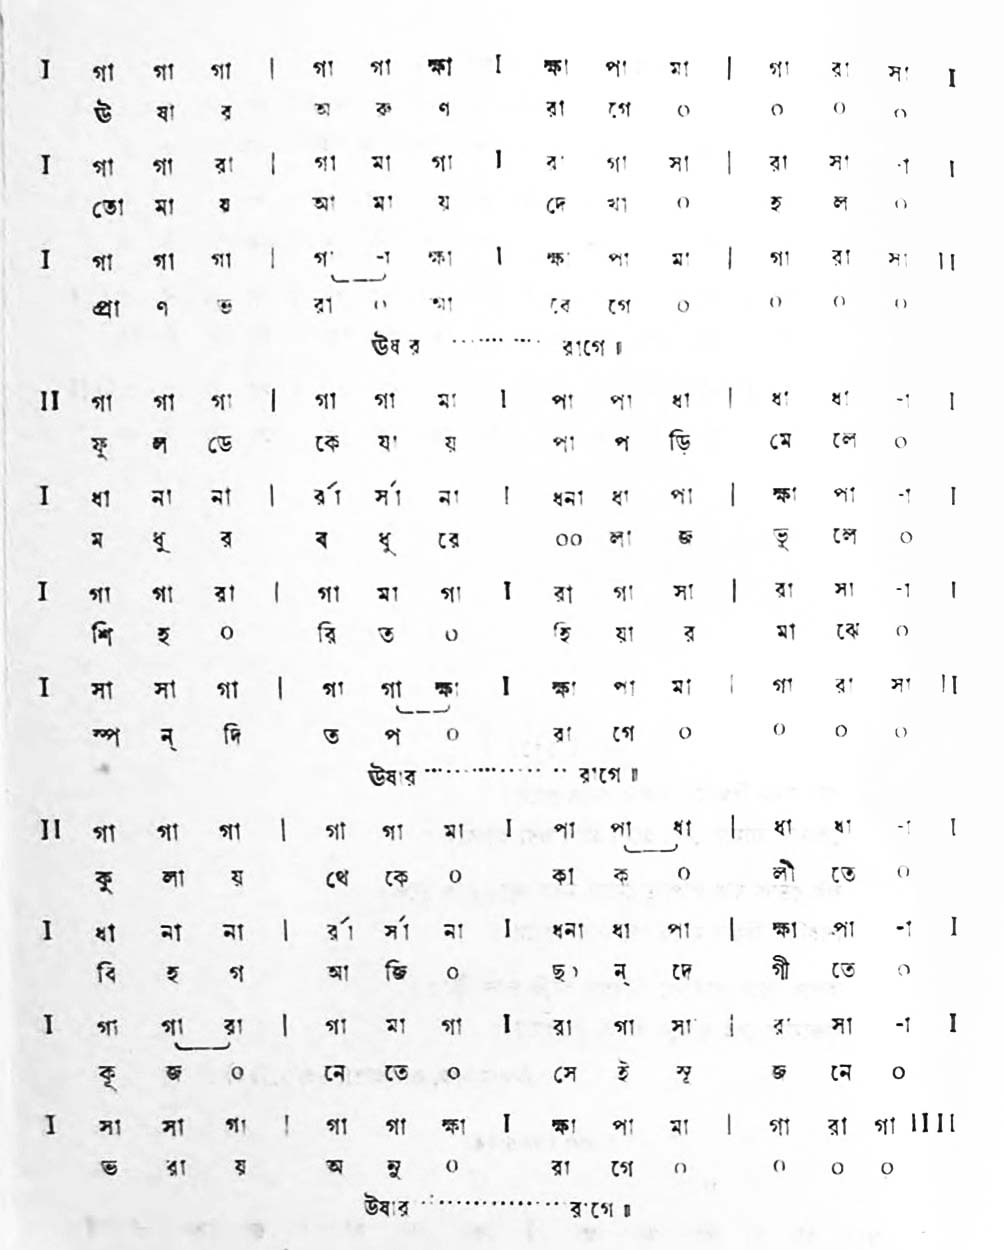 I গা গা গা | গা গা ক্ষা I ক্ষা পা মা | গা রা সা I
ঊ ষা র অ রু ণ রা গে ০ ০ ০ ০
I গা গা রা | গা মা গা I রা গা সা | রা সা -া I
তো মা য় আ মা য় দে খা ০ হ ল ০
I গা গা গা | গা -া ক্ষা I ক্ষা পা মা | গা রা সা II
প্রা ণ ভ রা ০ আ বে গে ০ ০ ০ ০
ঊষ র ············ রাগে॥
II গা গা গা | গা গা মা I পা পা ধা | ধা ধা -া I
ফু ল ডে কে যা য় পা প ড়ি মে লে ০
I ধা না না | র্রা র্সা না I ধনা ধা পা | ক্ষা পা -া I
ম ধু র ব ধু রে ০০ লা জ ভু লে ০
I গা গা রা | গা মা গা I রা গা সা | রা সা -া I
শি হ ০ রি ত ০ হি য়া র মা ঝে ০
I সা সা গা | গা গা ক্ষা I ক্ষা পা মা | গা রা সা II
স্প ন্ দি ত প ০ রা গে ০ ০ ০ ০
ঊষার ················ রাগে॥
II গা গা গা | গা গা মা I পা পা ধা | ধা ধা -া I
কু লা য় থে কে ০ কা ক ০ লী তে ০
I ধা না না | র্রা র্সা না I ধনা ধা পা | ক্ষা পা -া I
বি হ গ আ জি ০ ছা ন্ দে গী তে ০
I গা গা রা | গা মা গা I রা গা সা | রা সা -া I
কূ জ ০ নে তে ০ সে ই সৃ জ নে ০
I সা সা গা | গা গা ক্ষা I ক্ষা পা মা | গা রা গা IIII
ভ রা য় অ নু ০ রা গে ০ ০ ০ ০
উষার ················ রাগে॥